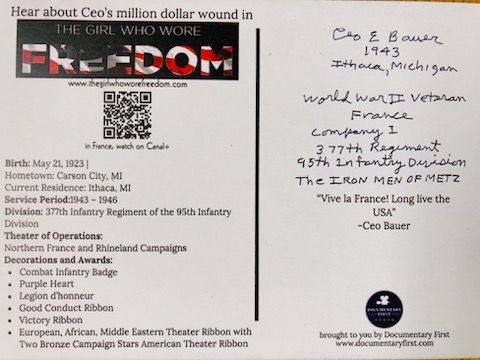 Hear about Ceo's million dollar wound in
THE GIRL WHO WORE
FREEDOM
www.thegirlwhoworefreedom.com
in France, watch on Canal+
Birth: May 21, 1923 |
Hometown: Carson City, MI
Current Residence: Ithaca, MI
Service Period:1943 – 1946
Division: 377th Infantry Regiment of the 95th Infantry
Division
Theater of Operations:
Northern France and Rhineland Campaigns
Decorations and Awards:
• Combat Infantry Badge
• Purple Heart
• Legion d'honneur
• Good Conduct Ribbon
• Victory Ribbon
• European, African, Middle Eastern Theater Ribbon with
Two Bronze Campaign Stars American Theater Ribbon
Ceo E Bauer
1943
Ithaca, Michigan
World War II Veteran
France
Company I
377th Regiment
95th Infantry Division
The IRON MEN OF METZ
"Vive la France! Long live the
USA"
-Ceo Bauer
DOCUMENTARY
FIRST
brought to you by Documentary First
www.documentaryfirst.com